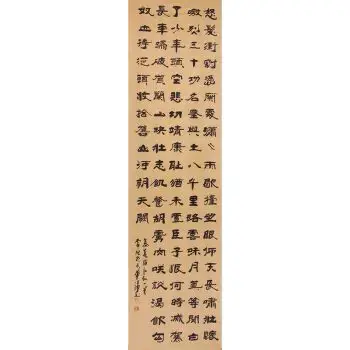 怒髮衝冠憑闌處瀟〻雨歇擡望眼仰天長嘯壯懷
激烈三十功名塵與土八千里路雲和月莫等閒白
了少年頭空悲切靖康恥猶未雪臣子恨何時滅駕
長車踏破賀蘭山缺壯志飢餐胡虜肉笑談渴飲匈
奴血待從頭收拾舊山河朝天闕
岳飛滿江紅一首